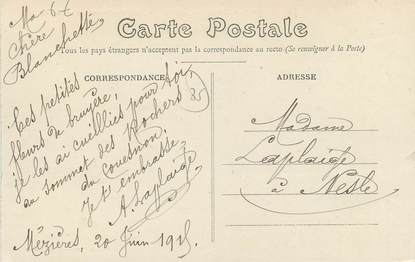 Ma
Chère
Blanchette
Carte Postale
Tous les pays étrangers n'acceptent pas la correspondance au recto (Se renseigner à la Poste)
CORRESPONDANCE
Ces petites
fleurs de bruyère,
je les ai cueillies pour toi,
au sommet des Rochers
du Couesnon.
Je t'embrasse,
A. Laplaige
Mézières, 20 Juin 1915.
85
ADRESSE
Madame
Leplaige
à Nesle